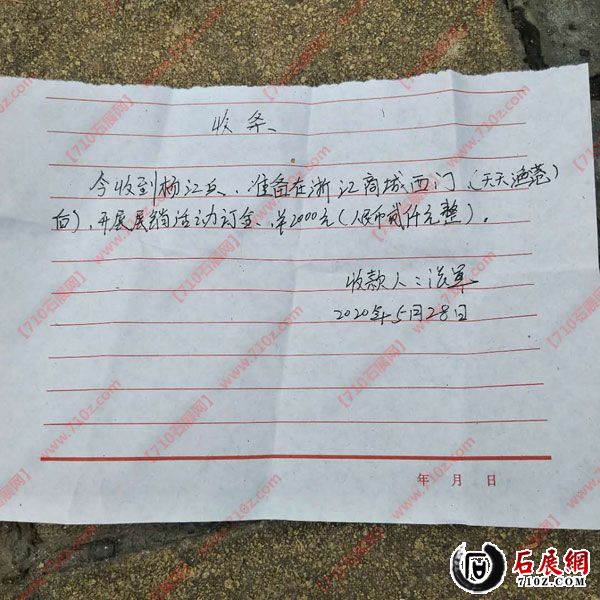 收条、
今收到杨江民、准备在浙江商城西门(天天渔莞)
面)、开展展销活动订金、¥2000元(人民币贰仟元整)。
收款人:
2020年5月28日
年 月 日
【710石展网】
www.710z.com
石展網
710Z.COM